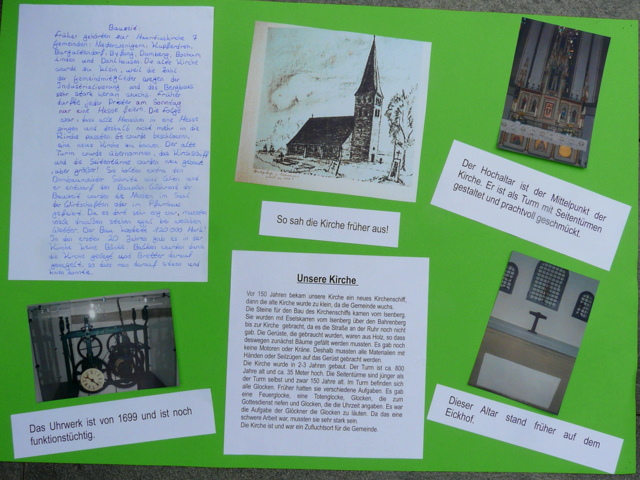 Bauzeit
Früher gehörten zur Mauritiuskirche 7
Gemeinden: Niederwenigern, Kupferdreh,
Burgaltendorf, Byfang, Dumberg, Bochum
Linden und Dahlhausen. Die alte Kirche
wurde zu klein, weil die Zahl
der Gemeindemitglieder wegen der
Industrialisierung und des Bergbaus
sehr stark wuchs. Früher
durfte jeder Priester am Sonntag
nur eine Messe feiern. Die Folge
war, dass alle Menschen in eine Messe
gingen und deshalb nicht mehr in die
Kirche passten. Es wurde beschlossen
eine neue Kirche zu bauen. Der alte
Turm wurde übernommen, das Kirchschiff
und die Seitentürme wurden neu gebaut
, aber größer! Sie holten
Bauzeit wurden die Messen im Saal
der Wirtschaften oder im Pfarrhaus
gefeiert. Da es dort sehr eng war, mussten
viele draußen stehen egal bei welchem
Wetter. Der Bau kostete 120 000 Mark!
In den ersten 20 Jahren gab es in der
Kirche keine Bänke.
So sah die Kirche früher aus!
Der Hochaltar ist der Mittelpunkt der
Kirche. Er ist als Turm mit Seitentürmen
gestaltet und prachtvoll geschmückt.
Unsere Kirche
Vor 150 Jahren bekam unsere Kirche ein neues Kirchenschiff,
dann die alte Kirche wurde zu klein, da die Gemeinde wuchs.
Die Steine für den Bau des Kirchenschiffs kamen vom Isenberg.
Sie wurden mit Eselskarren vom Isenberg über den Bahrenberg
bis zur Kirche gebracht, da es die Straße an der Ruhr noch nicht
gab. Die Gerüste, die gebraucht wurden, waren aus Holz, so dass
deswegen zunächst Bäume gefällt werden mussten. Es gab noch
keine Motoren oder Kräne. Deshalb mussten alle Materialien mit
Händen oder Seilzügen auf das Gerüst gebracht werden.
Die Kirche wurde in 2-3 Jahren gebaut. Der Turm ist ca. 800
Jahre alt und ca. 35 Meter hoch. Die Seitentürme sind jünger als
der Turm selbst und zwar 150 Jahre alt. Im Turm befinden sich
alle Glocken. Früher hatten sie verschiedene Aufgaben. Es gab
eine Feuerglocke, eine Totenglocke, Glocken, die zum
Gottesdienst riefen und Glocken, die die Uhrzeit angaben. Es war
die Aufgabe der Glöckner die Glocken zu läuten. Da das eine
schwere Arbeit war, mussten sie sehr stark sein.
Die Kirche ist und war ein Zufluchtsort für die Gemeinde.
Das Uhrwerk ist von 1699 und ist noch
funktionstüchtig.
Dieser Altar stand früher auf dem
Eickhof.